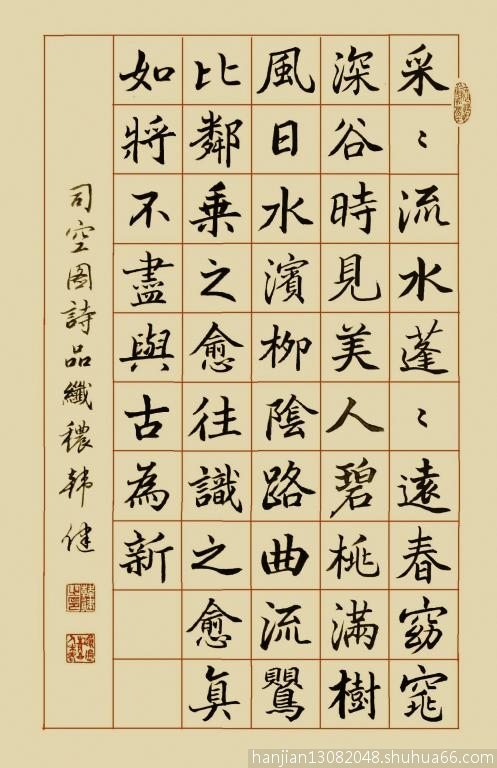 采〻流水蓬〻遠春窈窕
深谷時見美人碧桃滿樹
風日水濱柳陰路曲流鸎
比鄰乘之愈往識之愈真
如將不盡與古為新
司空图詩品纖穠韩健
hanjian13082048.shuhua66.com